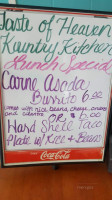 Taste of Heaven
Kountry Kitchen
Lunch Special
Carne Asada
Burrito 6.00
comes with rice beans, cheese, onions
and cilantro OR $6.00
Hard Shell Taco
Plate w/ Rice & Beans
Coca-Cola